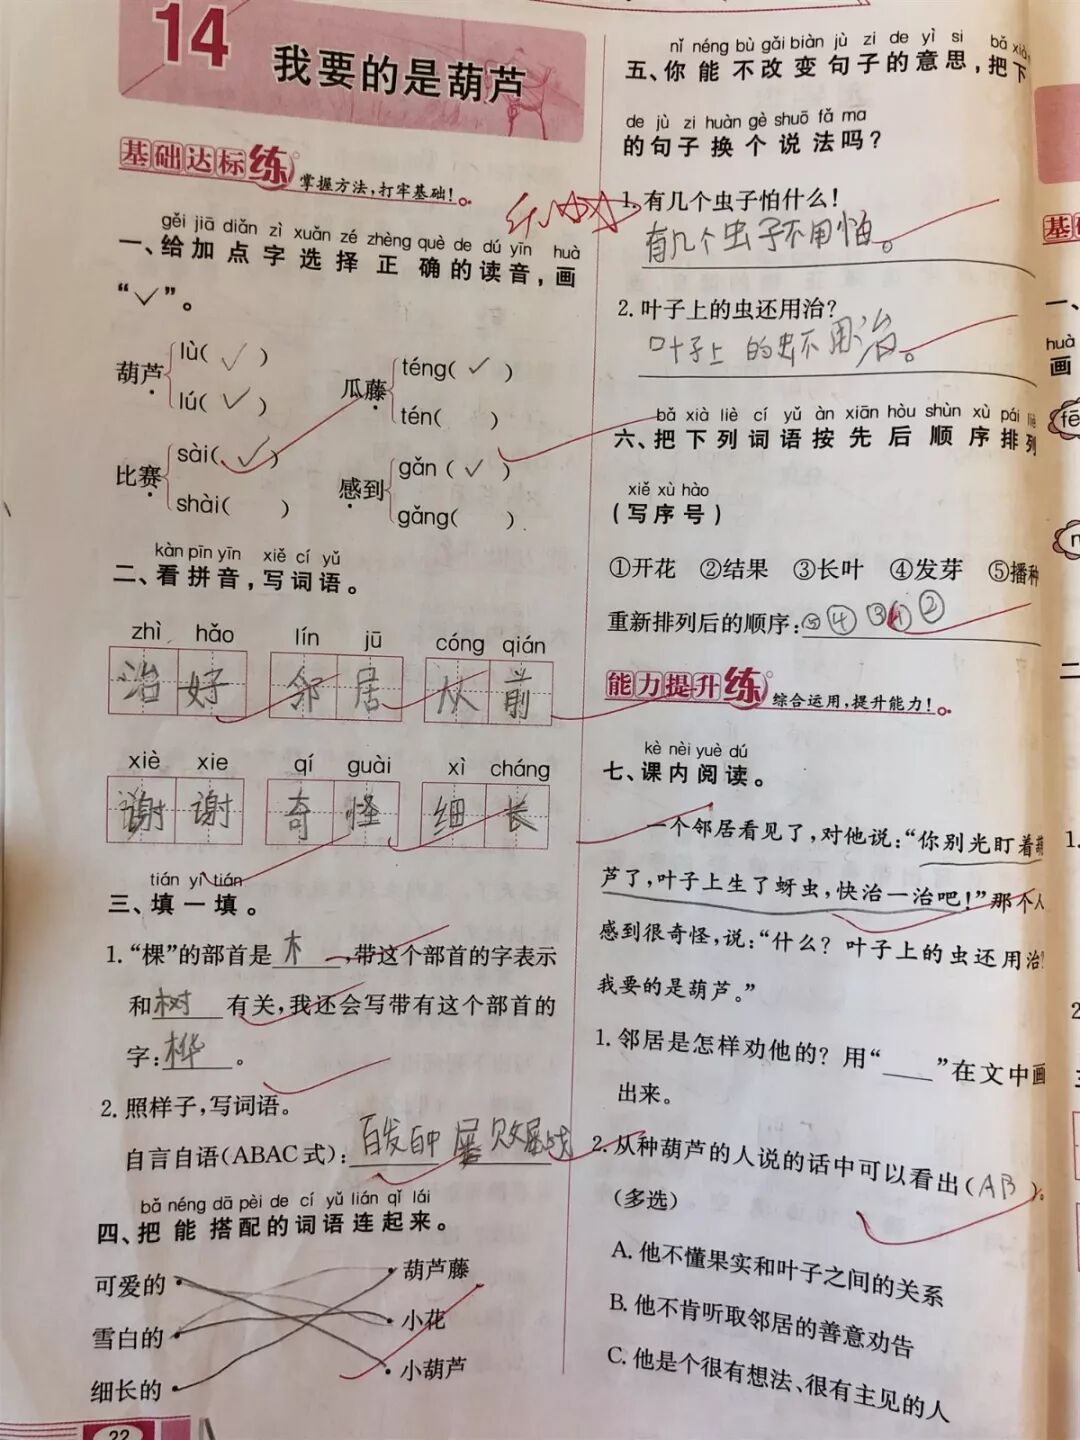 14
我要的是葫芦
基础达标练
掌握方法,打牢基础!
gěi jiā diǎn zì xuǎn zé zhèng què de dú yīn huà
一、给加点字选择正确的读音,画
“✓”。
葫芦 lù( ✓ )
lú( ✓ )
瓜藤 téng( ✓ )
tén( )
比赛 sài( ✓ )
shài( )
感到 gǎn( ✓ )
gǎng( )
kàn pīn yīn xiě cí yǔ
二、看拼音,写词语。
zhì hǎo lín jū cóng qián
治好 邻居 从前
xiè xie qí guài xì cháng
谢谢 奇怪 细长
tián yi tián
三、填一填。
1.“棵”的部首是木,带这个部首的字表示
和树有关,我还会写带有这个部首的
字:桦。
2. 照样子,写词语。
自言自语(ABAC式):百发百中 屡败屡战
bǎ néng dā pèi de cí yǔ lián qǐ lái
四、把能搭配的词语连起来。
可爱的 葫芦藤
雪白的 小花
细长的 小葫芦
22
nǐ néng bù gǎi biàn jù zi de yì si bǎ xià
五、你能不改变句子的意思,把下
de jù zi huàn gè shuō fǎ ma
的句子换个说法吗?
1. 有几个虫子怕什么!
有几个虫子不用怕。
2. 叶子上的虫还用治?
叶子上的虫不用治。
bǎ xià liè cí yǔ àn xiān hòu shùn xù pái liè
六、把下列词语按先后顺序排列
xiě xù hào
(写序号)
①开花 ②结果 ③长叶 ④发芽 ⑤播种
重新排列后的顺序:⑤④③①②
能力提升练
综合运用,提升能力!
kè nèi yuè dú
七、课内阅读。
一个邻居看见了,对他说:“你别光盯着葫
芦了,叶子上生了蚜虫,快治一治吧!”那个人
感到很奇怪,说:“什么?叶子上的虫还用治?
我要的是葫芦。”
1. 邻居是怎样劝他的?用“____”在文中画
出来。
2. 从种葫芦的人说的话中可以看出(AB)。
(多选)
A. 他不懂果实和叶子之间的关系
B. 他不肯听取邻居的善意劝告
C. 他是个很有想法、很有主见的人
基
一、
huà
画
fē
1.
二
2